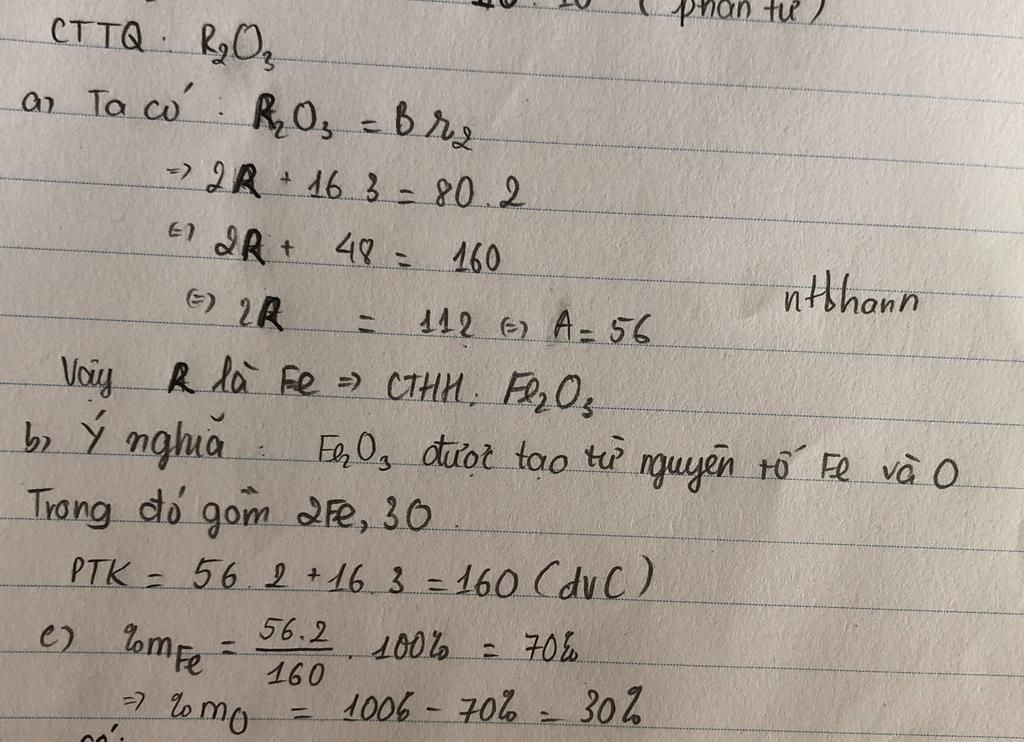 (phân tử)
CTTQ: R₂O₃
a) Ta có: R₂O₃ = Br₂
=> 2R + 16.3 = 80.2
<=> 2R + 48 = 160
<=> 2R = 112 <=> A = 56
nthhann
Vậy R là Fe => CTHH: Fe₂O₃
b) Ý nghĩa: Fe₂O₃ được tạo từ nguyên tố Fe và O
Trong đó gồm 2Fe, 3O.
PTK = 56.2 + 16.3 = 160 (dvC)
c) %mFe = 56.2/160 . 100% = 70%
=> %mO = 100% - 70% = 30%